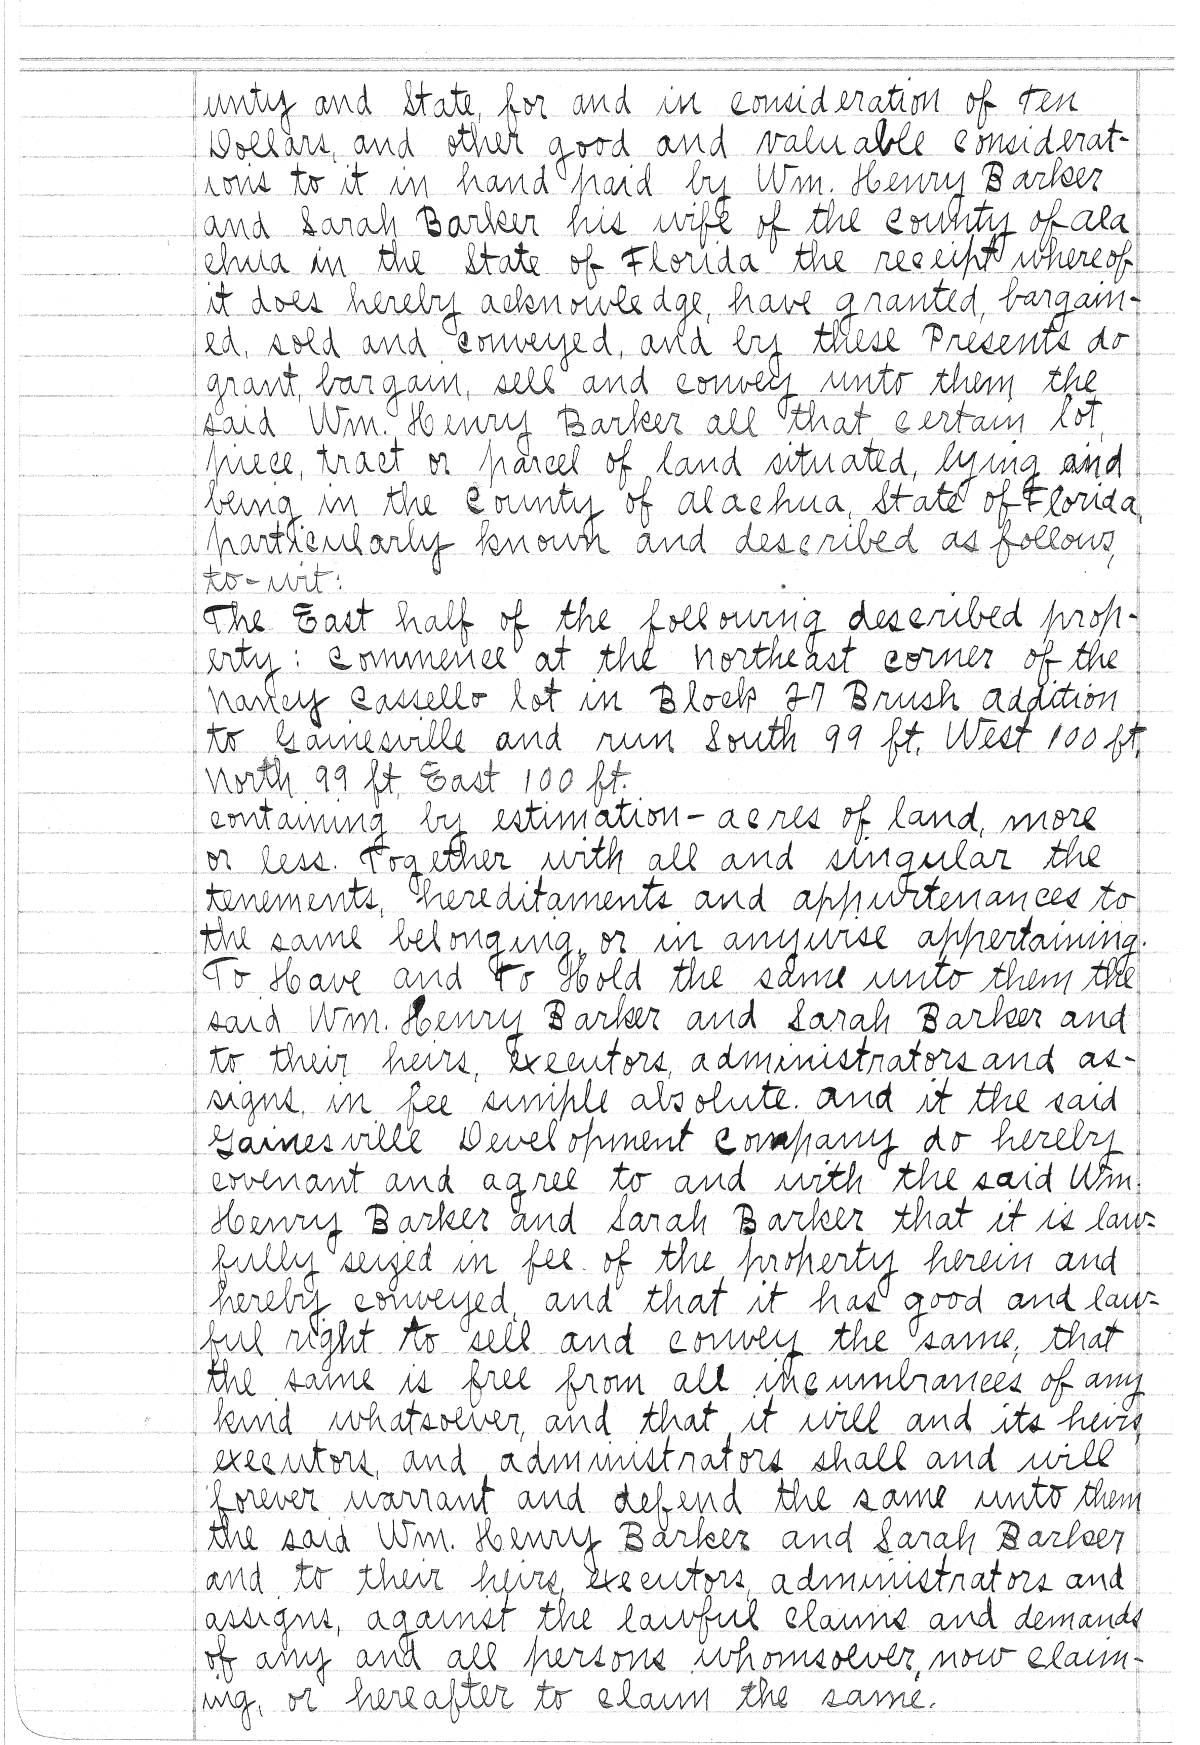 unty and State, for and in consideration of Ten
Dollars, and other good and valuable considerat-
ions to it in hand paid by Wm. Henry Barker
and Sarah Barker his wife of the County of Ala
chua in the State of Florida the receipt whereof
it does hereby acknowledge, have granted, bargain-
ed, sold and conveyed, and by these Presents do
grant, bargain, sell and convey unto them the
said Wm. Henry Barker all that certain lot,
piece, tract or parcel of land situated, lying and
being in the County of Alachua, State of Florida,
particularly known and described as follows,
to-wit:
The East half of the following described prop-
erty: Commence at the Northeast corner of the
Nancy Cassello lot in Block 27 Brush Addition
to Gainesville and run South 99 ft. West 100 ft,
North 99 ft, East 100 ft.
containing by estimation - acres of land, more
or less. Together with all and singular the
tenements, hereditaments and appurtenances to
the same belonging, or in anywise appertaining.
To Have and To Hold the same unto them the
said Wm. Henry Barker and Sarah Barker and
to their heirs, executors, administrators and as-
signs, in fee simple absolute. And it the said
Gainesville Development Company do hereby
covenant and agree to and with the said Wm.
Henry Barker and Sarah Barker that it is law=
fully seized in fee. of the property herein and
hereby conveyed, and that it has good and law=
ful right to sell and convey the same, that
the same is free from all incumbrances of any
kind whatsoever, and that it will and its heirs,
executors, and administrators shall and will
forever warrant and defend the same unto them
the said Wm. Henry Barker and Sarah Barker
and to their heirs, executors, administrators and
assigns, against the lawful claims and demands
of any and all persons whomsoever, now claim-
ing, or hereafter to claim the same.